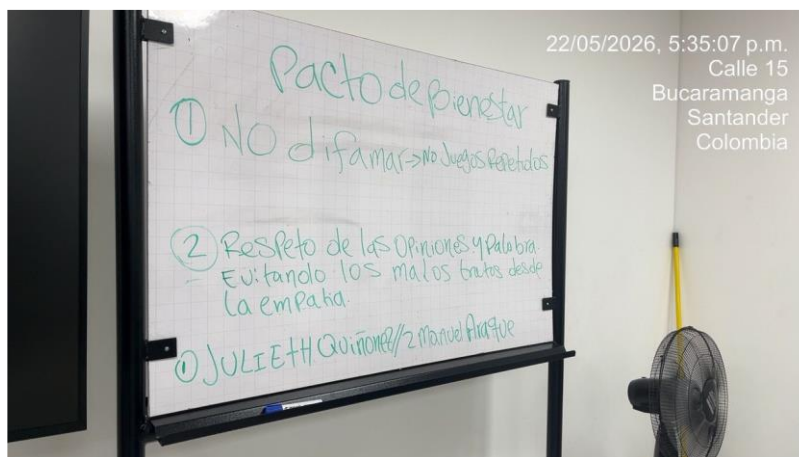 22/05/2026, 5:35:07 p.m.
Calle 15
Bucaramanga
Santander
Colombia
Pacto de Bienestar
① NO difamar → No Juegos Repetidos
② Respeto de las Opiniones y Palabra
Evitando los malos tratos desde
la empatia.
① JULIETH Quiñonez // 2 Manuel Araque